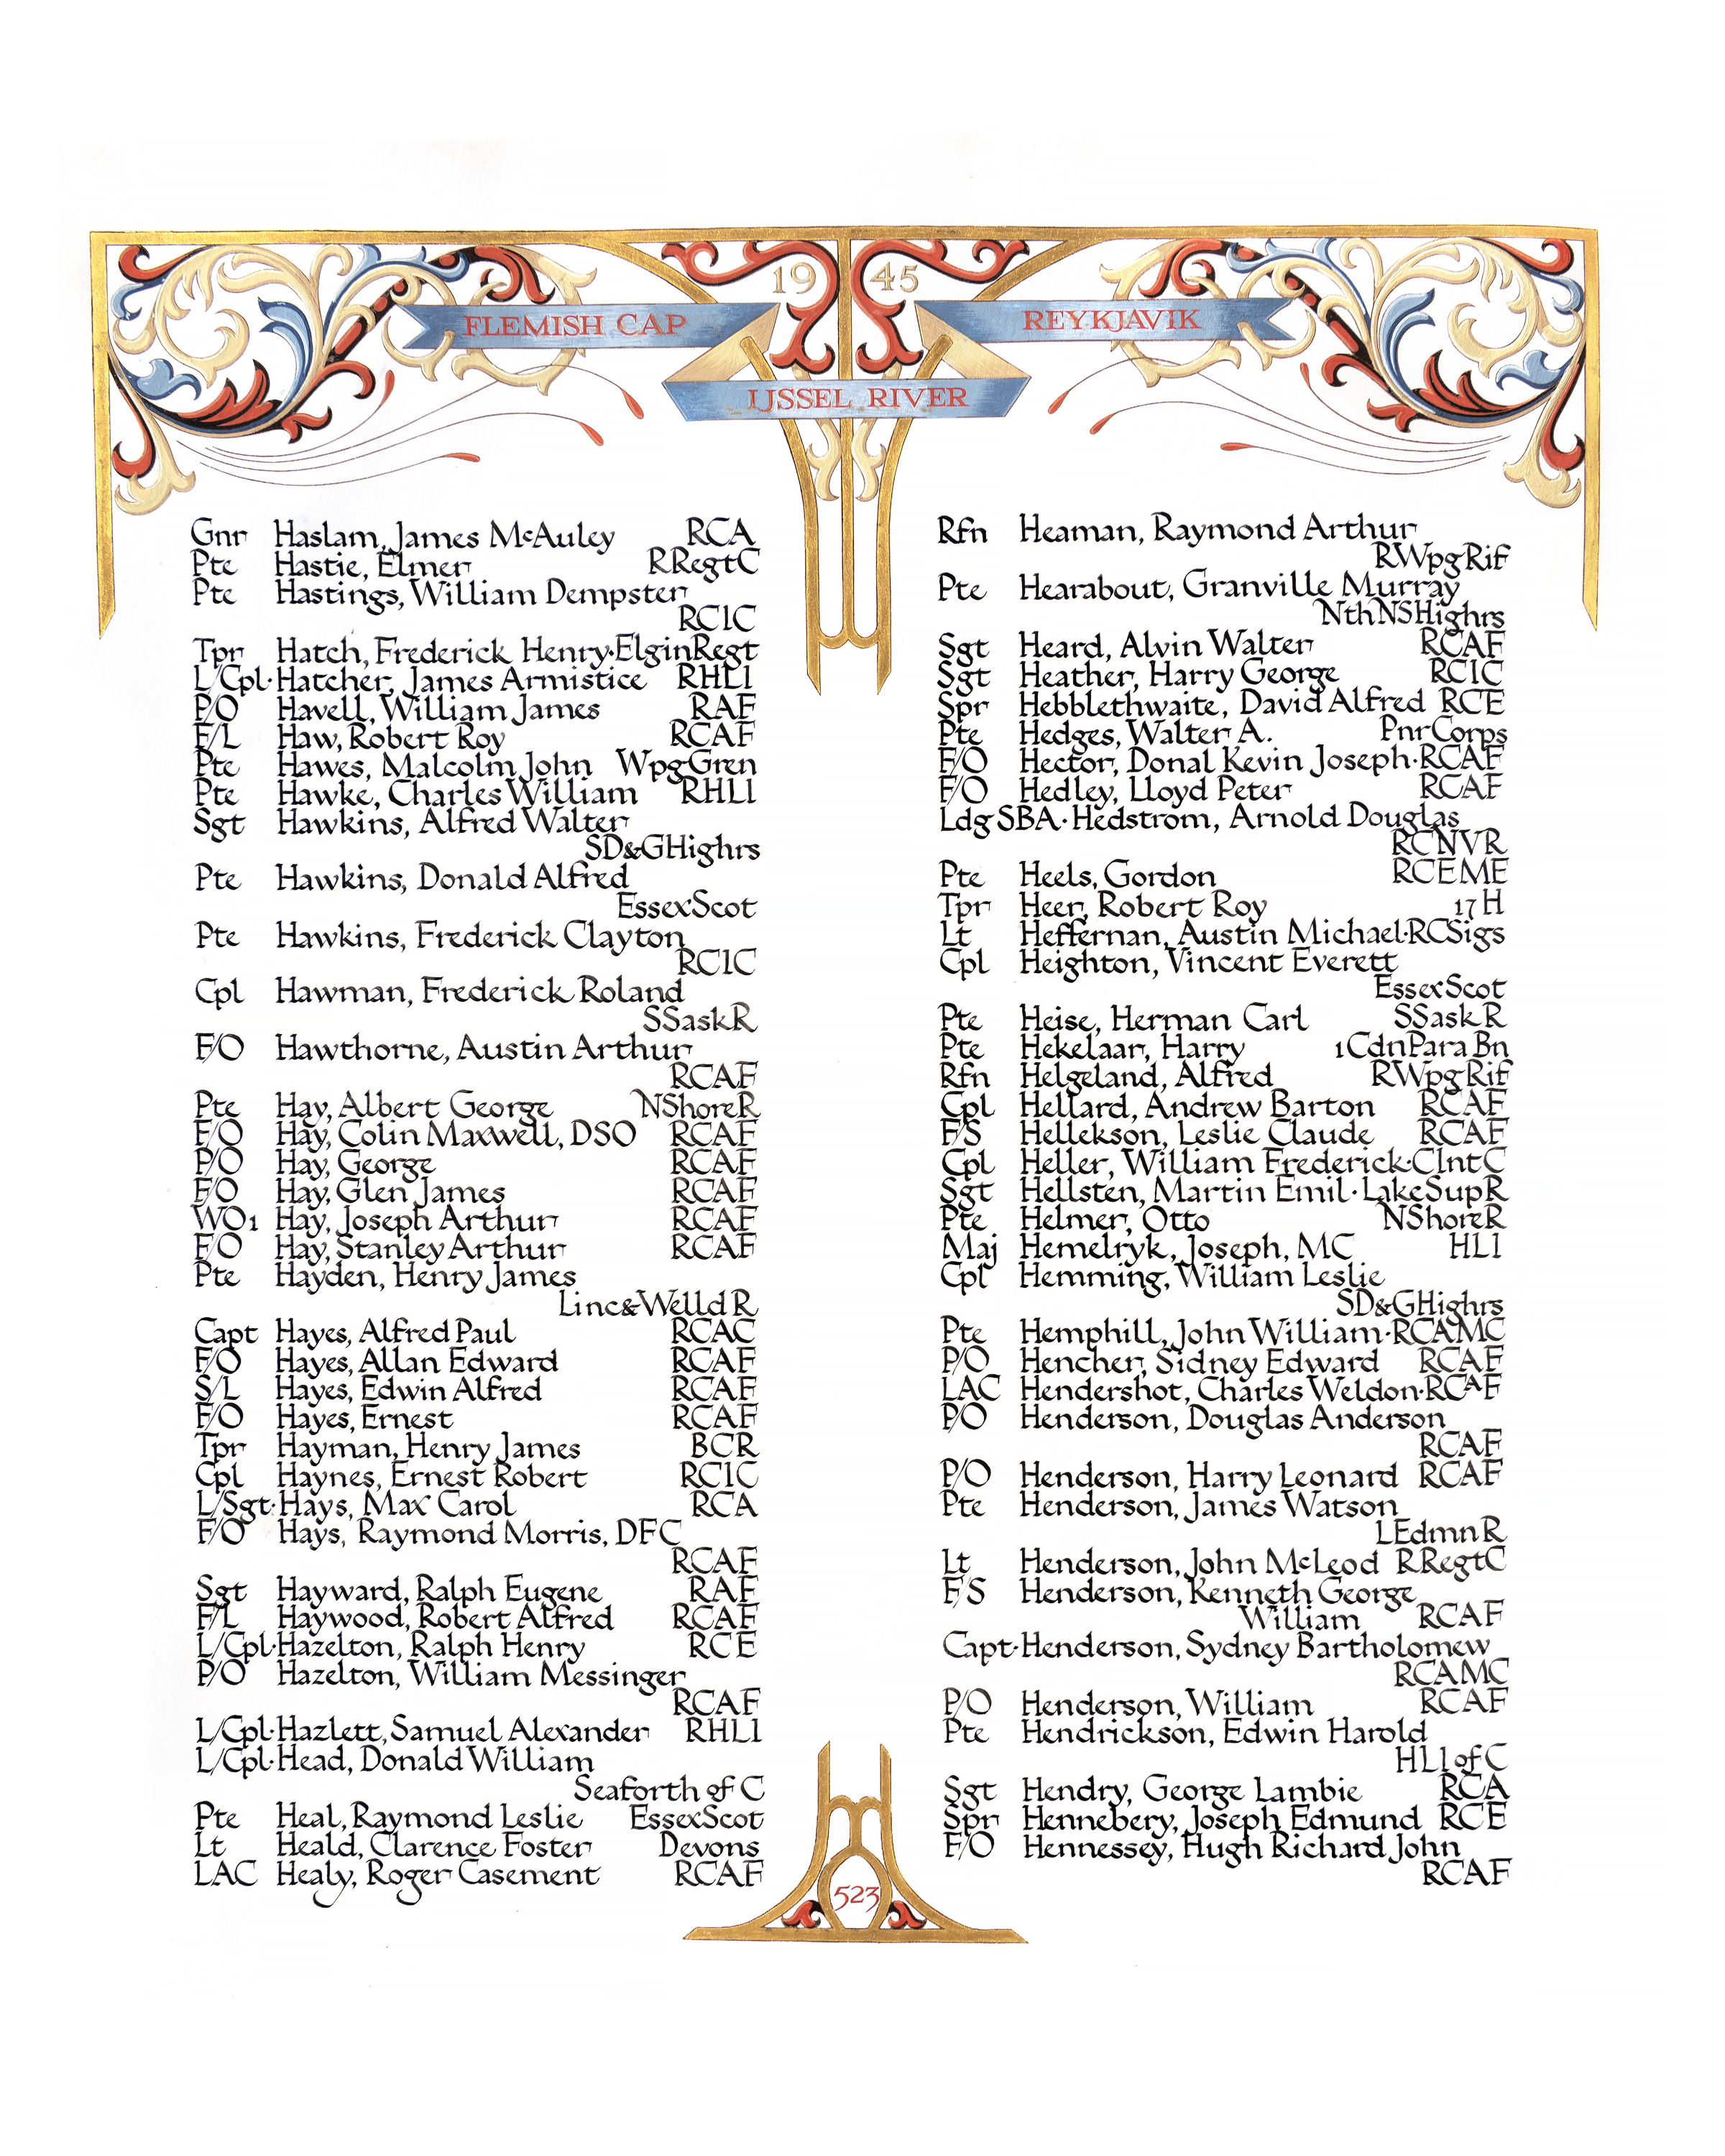 19 45
FLEMISH CAP
REYKJAVIK
IJSSEL RIVER
Gnr Haslam, James McAuley RCA
Pte Hastie, Elmer RRegtC
Pte Hastings, William Dempster
RCIC
Tpr Hatch, Frederick Henry·ElginRegt
L/Cpl·Hatcher, James Armistice RHLI
P/O Havell, William James RAF
F/L Haw, Robert Roy RCAF
Pte Hawes, Malcolm John WpgGren
Pte Hawke, Charles William RHLI
Sgt Hawkins, Alfred Walter
SD&GHighrs
Pte Hawkins, Donald Alfred
EssexScot
Pte Hawkins, Frederick Clayton
RCIC
Cpl Hawman, Frederick Roland
SSaskR
F/O Hawthorne, Austin Arthur
RCAF
Pte Hay, Albert George NShoreR
F/O Hay, Colin Maxwell, DSO RCAF
P/O Hay, George RCAF
F/O Hay, Glen James RCAF
WO1 Hay, Joseph Arthur RCAF
F/O Hay, Stanley Arthur RCAF
Pte Hayden, Henry James
Linc&WelldR
Capt Hayes, Alfred Paul RCAC
F/O Hayes, Allan Edward RCAF
S/L Hayes, Edwin Alfred RCAF
F/O Hayes, Ernest RCAF
Tpr Hayman, Henry James BCR
Cpl Haynes, Ernest Robert RCIC
L/Sgt·Hays, Max Carol RCA
F/O Hays, Raymond Morris, DFC
RCAF
Sgt Hayward, Ralph Eugene RAF
F/L Haywood, Robert Alfred RCAF
L/Cpl·Hazelton, Ralph Henry RCE
P/O Hazelton, William Messinger
RCAF
L/Cpl·Hazlett, Samuel Alexander RHLI
L/Cpl·Head, Donald William
Seaforth of C
Pte Heal, Raymond Leslie EssexScot
Lt Heald, Clarence Foster Devons
LAC Healy, Roger Casement RCAF
Rfn Heaman, Raymond Arthur
RWpgRif
Pte Hearabout, Granville Murray
NthNSHighrs
Sgt Heard, Alvin Walter RCAF
Sgt Heather, Harry George RCIC
Spr Hebblethwaite, David Alfred RCE
Pte Hedges, Walter A. PnrCorps
F/O Hector, Donal Kevin Joseph·RCAF
F/O Hedley, Lloyd Peter RCAF
LdgSBA·Hedstrom, Arnold Douglas
RCNVR
Pte Heels, Gordon RCEME
Tpr Heer, Robert Roy 17H
Lt Heffernan, Austin Michael·RCSigs
Cpl Heighton, Vincent Everett
EssexScot
Pte Heise, Herman Carl SSaskR
Pte Hekelaar, Harry 1CdnPara Bn
Rfn Helgeland, Alfred RWpgRif
Cpl Hellard, Andrew Barton RCAF
F/S Hellekson, Leslie Claude RCAF
Cpl Heller, William Frederick·CIntC
Sgt Hellsten, Martin Emil·LakeSupR
Pte Helmer, Otto NShoreR
Maj Hemelryk, Joseph, MC HLI
Cpl Hemming, William Leslie
SD&GHighrs
Pte Hemphill, John William·RCAMC
P/O Hencher, Sidney Edward RCAF
LAC Hendershot, Charles Weldon·RCAF
P/O Henderson, Douglas Anderson
RCAF
P/O Henderson, Harry Leonard RCAF
Pte Henderson, James Watson
LEdmnR
Lt Henderson, John McLeod RRegtC
F/S Henderson, Kenneth George
William RCAF
Capt·Henderson, Sydney Bartholomew
RCAMC
P/O Henderson, William RCAF
Pte Hendrickson, Edwin Harold
HLI of C
Sgt Hendry, George Lambie RCA
Spr Hennebery, Joseph Edmund RCE
F/O Hennessey, Hugh Richard John
RCAF
523